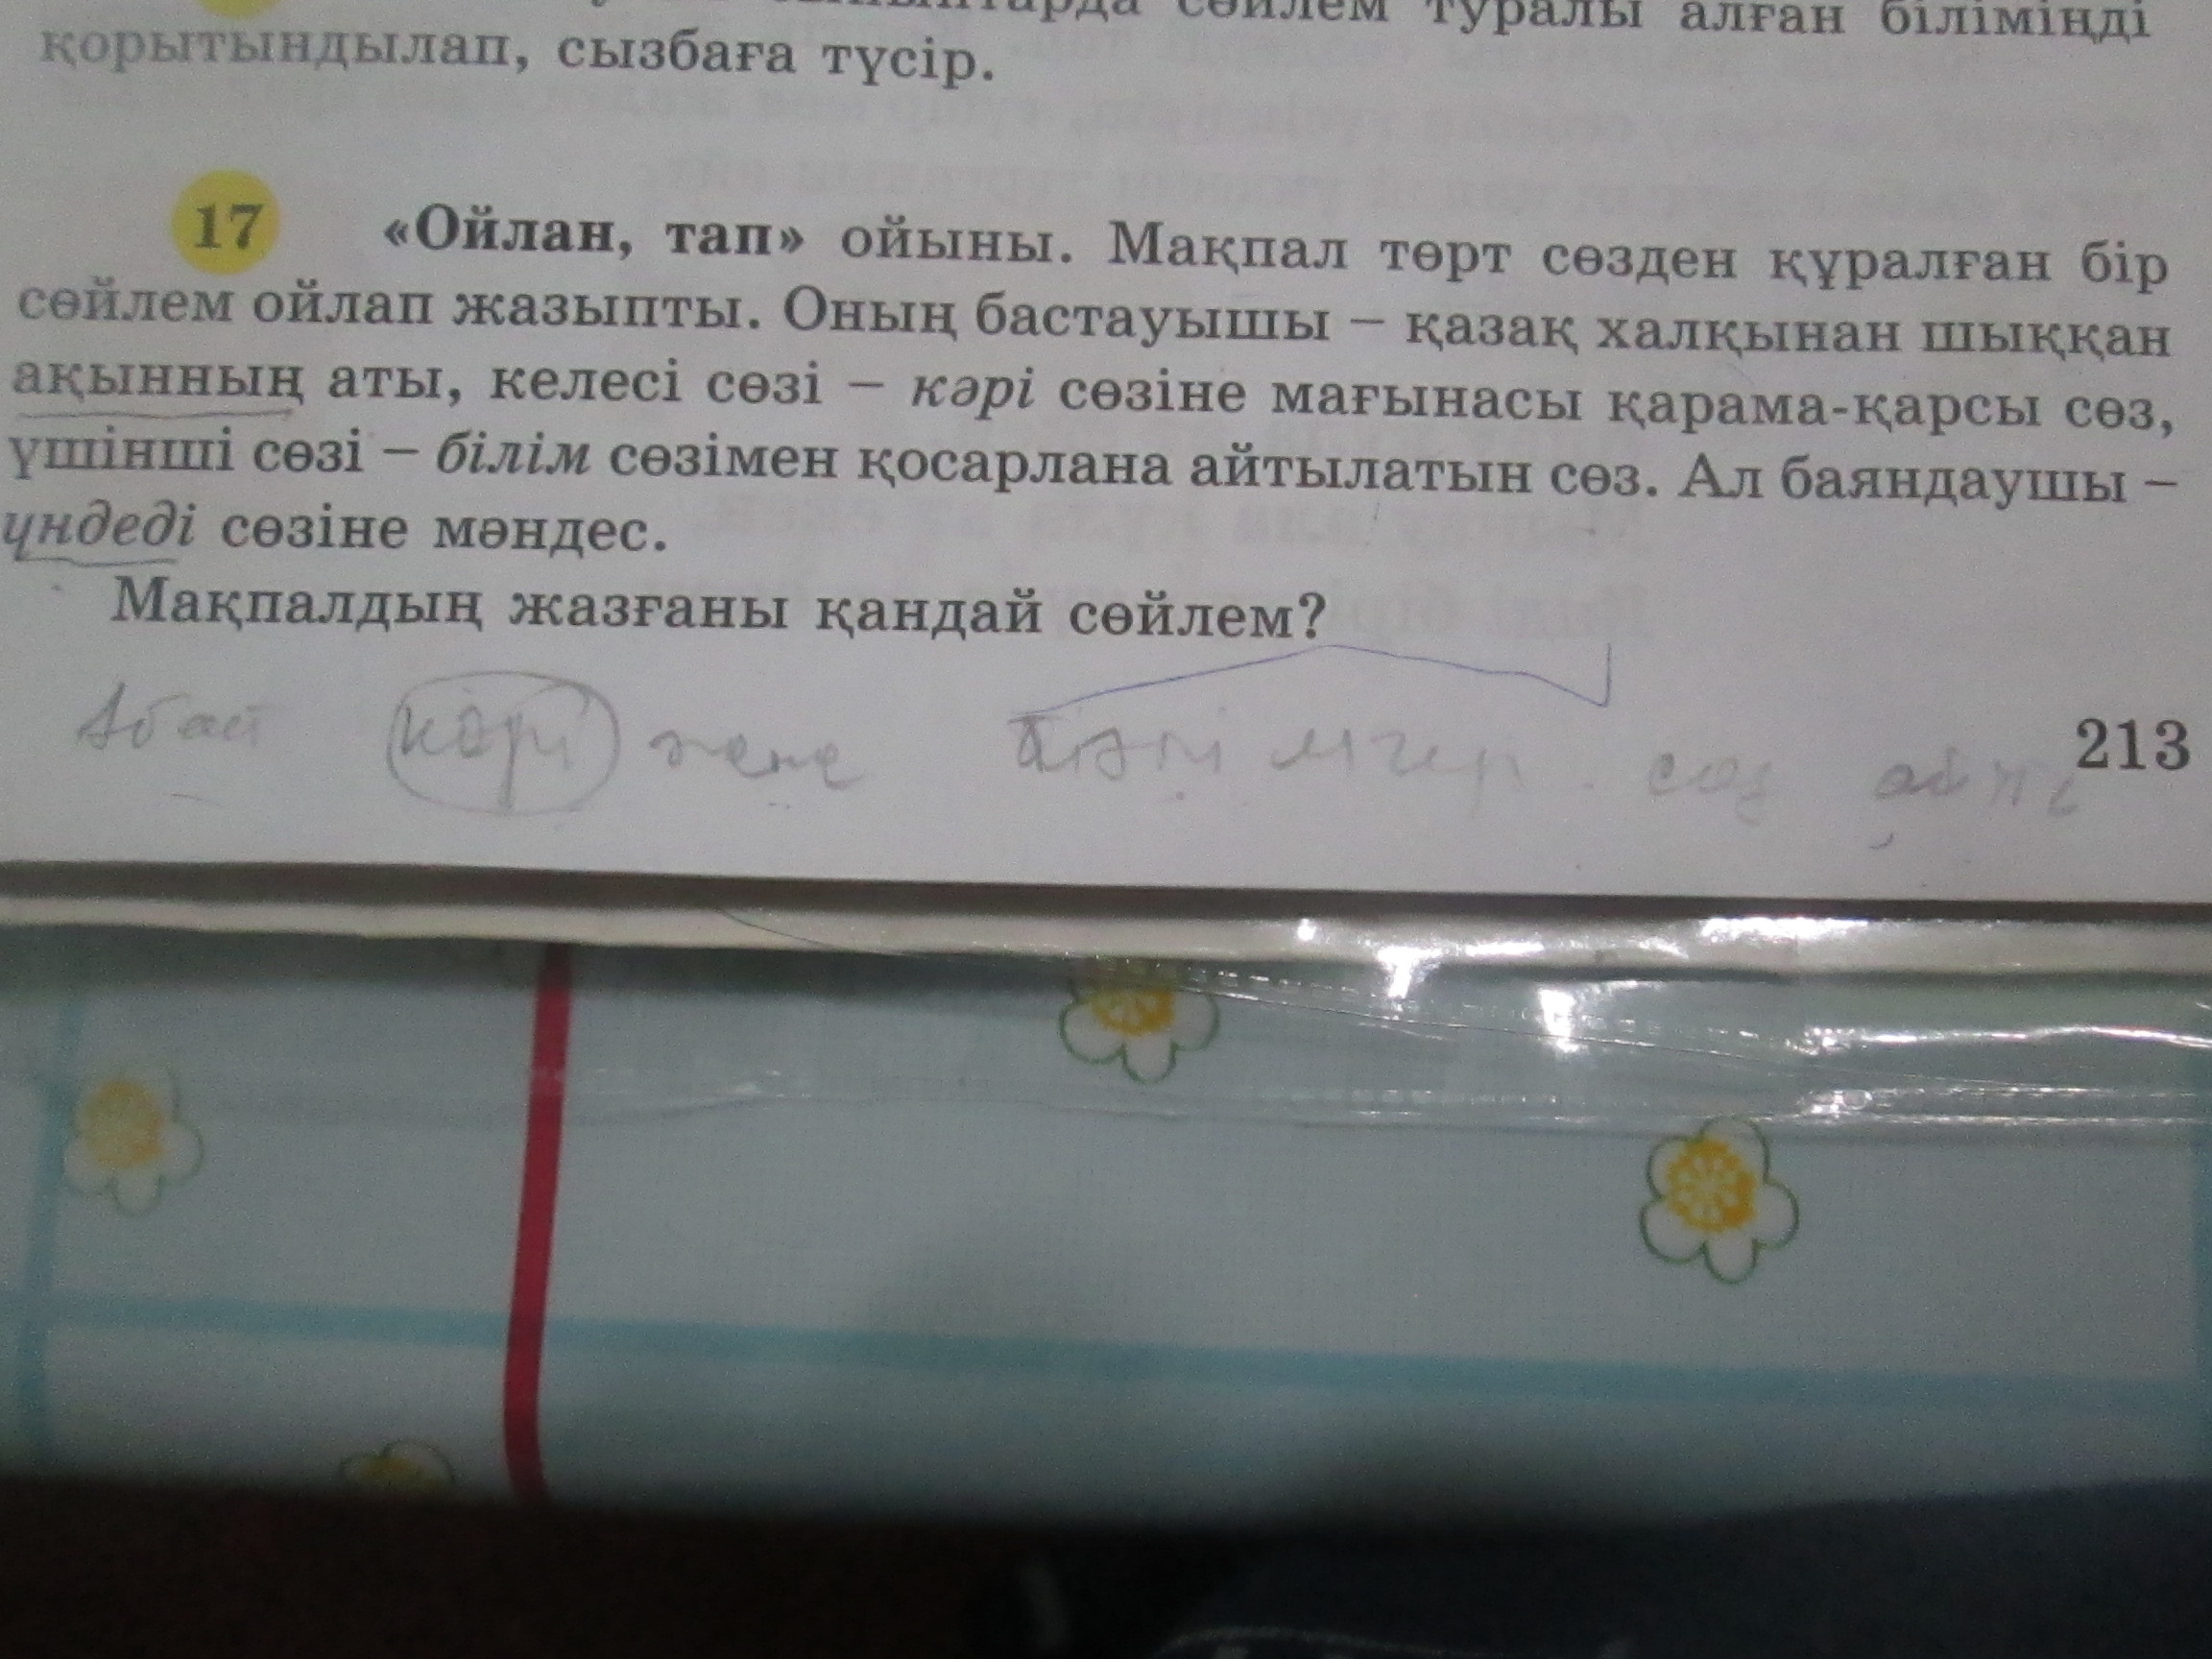 сөйлем туралы алған біліміңді
қорытындылап, сызбаға түсір.
17 «Ойлан, тап» ойыны. Мақпал төрт сөзден құралған бір
сөйлем ойлап жазыпты. Оның бастауышы – қазақ халқынан шыққан
ақынның аты, келесі сөзі – кәрі сөзіне мағынасы қарама-қарсы сөз,
үшінші сөзі – білім сөзімен қосарлана айтылатын сөз. Ал баяндаушы –
үндеді сөзіне мәндес.
Мақпалдың жазғаны қандай сөйлем?
Абай кәрі және сөз айты
213